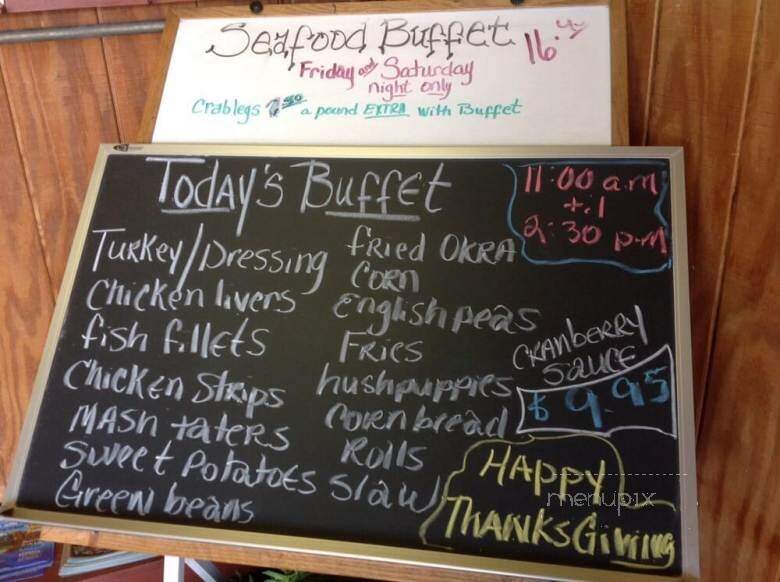 Seafood Buffet 16.99
Friday and Saturday
night only
Crablegs a pound EXTRA with Buffet
Today's Buffet
11:00 a.m
til
2:30 p.m
Turkey/Dressing
Chicken livers
fish fillets
Chicken Strips
MASH taters
Sweet Potatoes
Green beans
fRied OKRA
CORN
English peas
FRies
hushpuppies
Cornbread
Rolls
Slaw
CRANbeRRy
SAuce
$9.95
HAppy
THANKSGiving
menupix